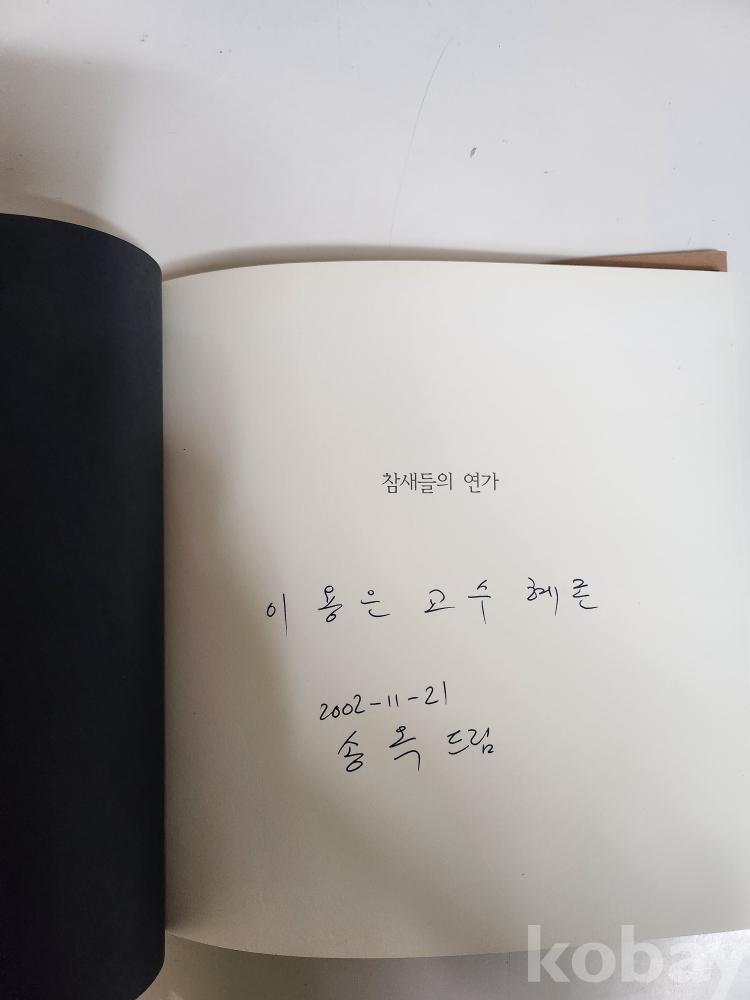 참새들의 연가
이용은 교수 혜존
2002-11-21
송옥 드림
kobay